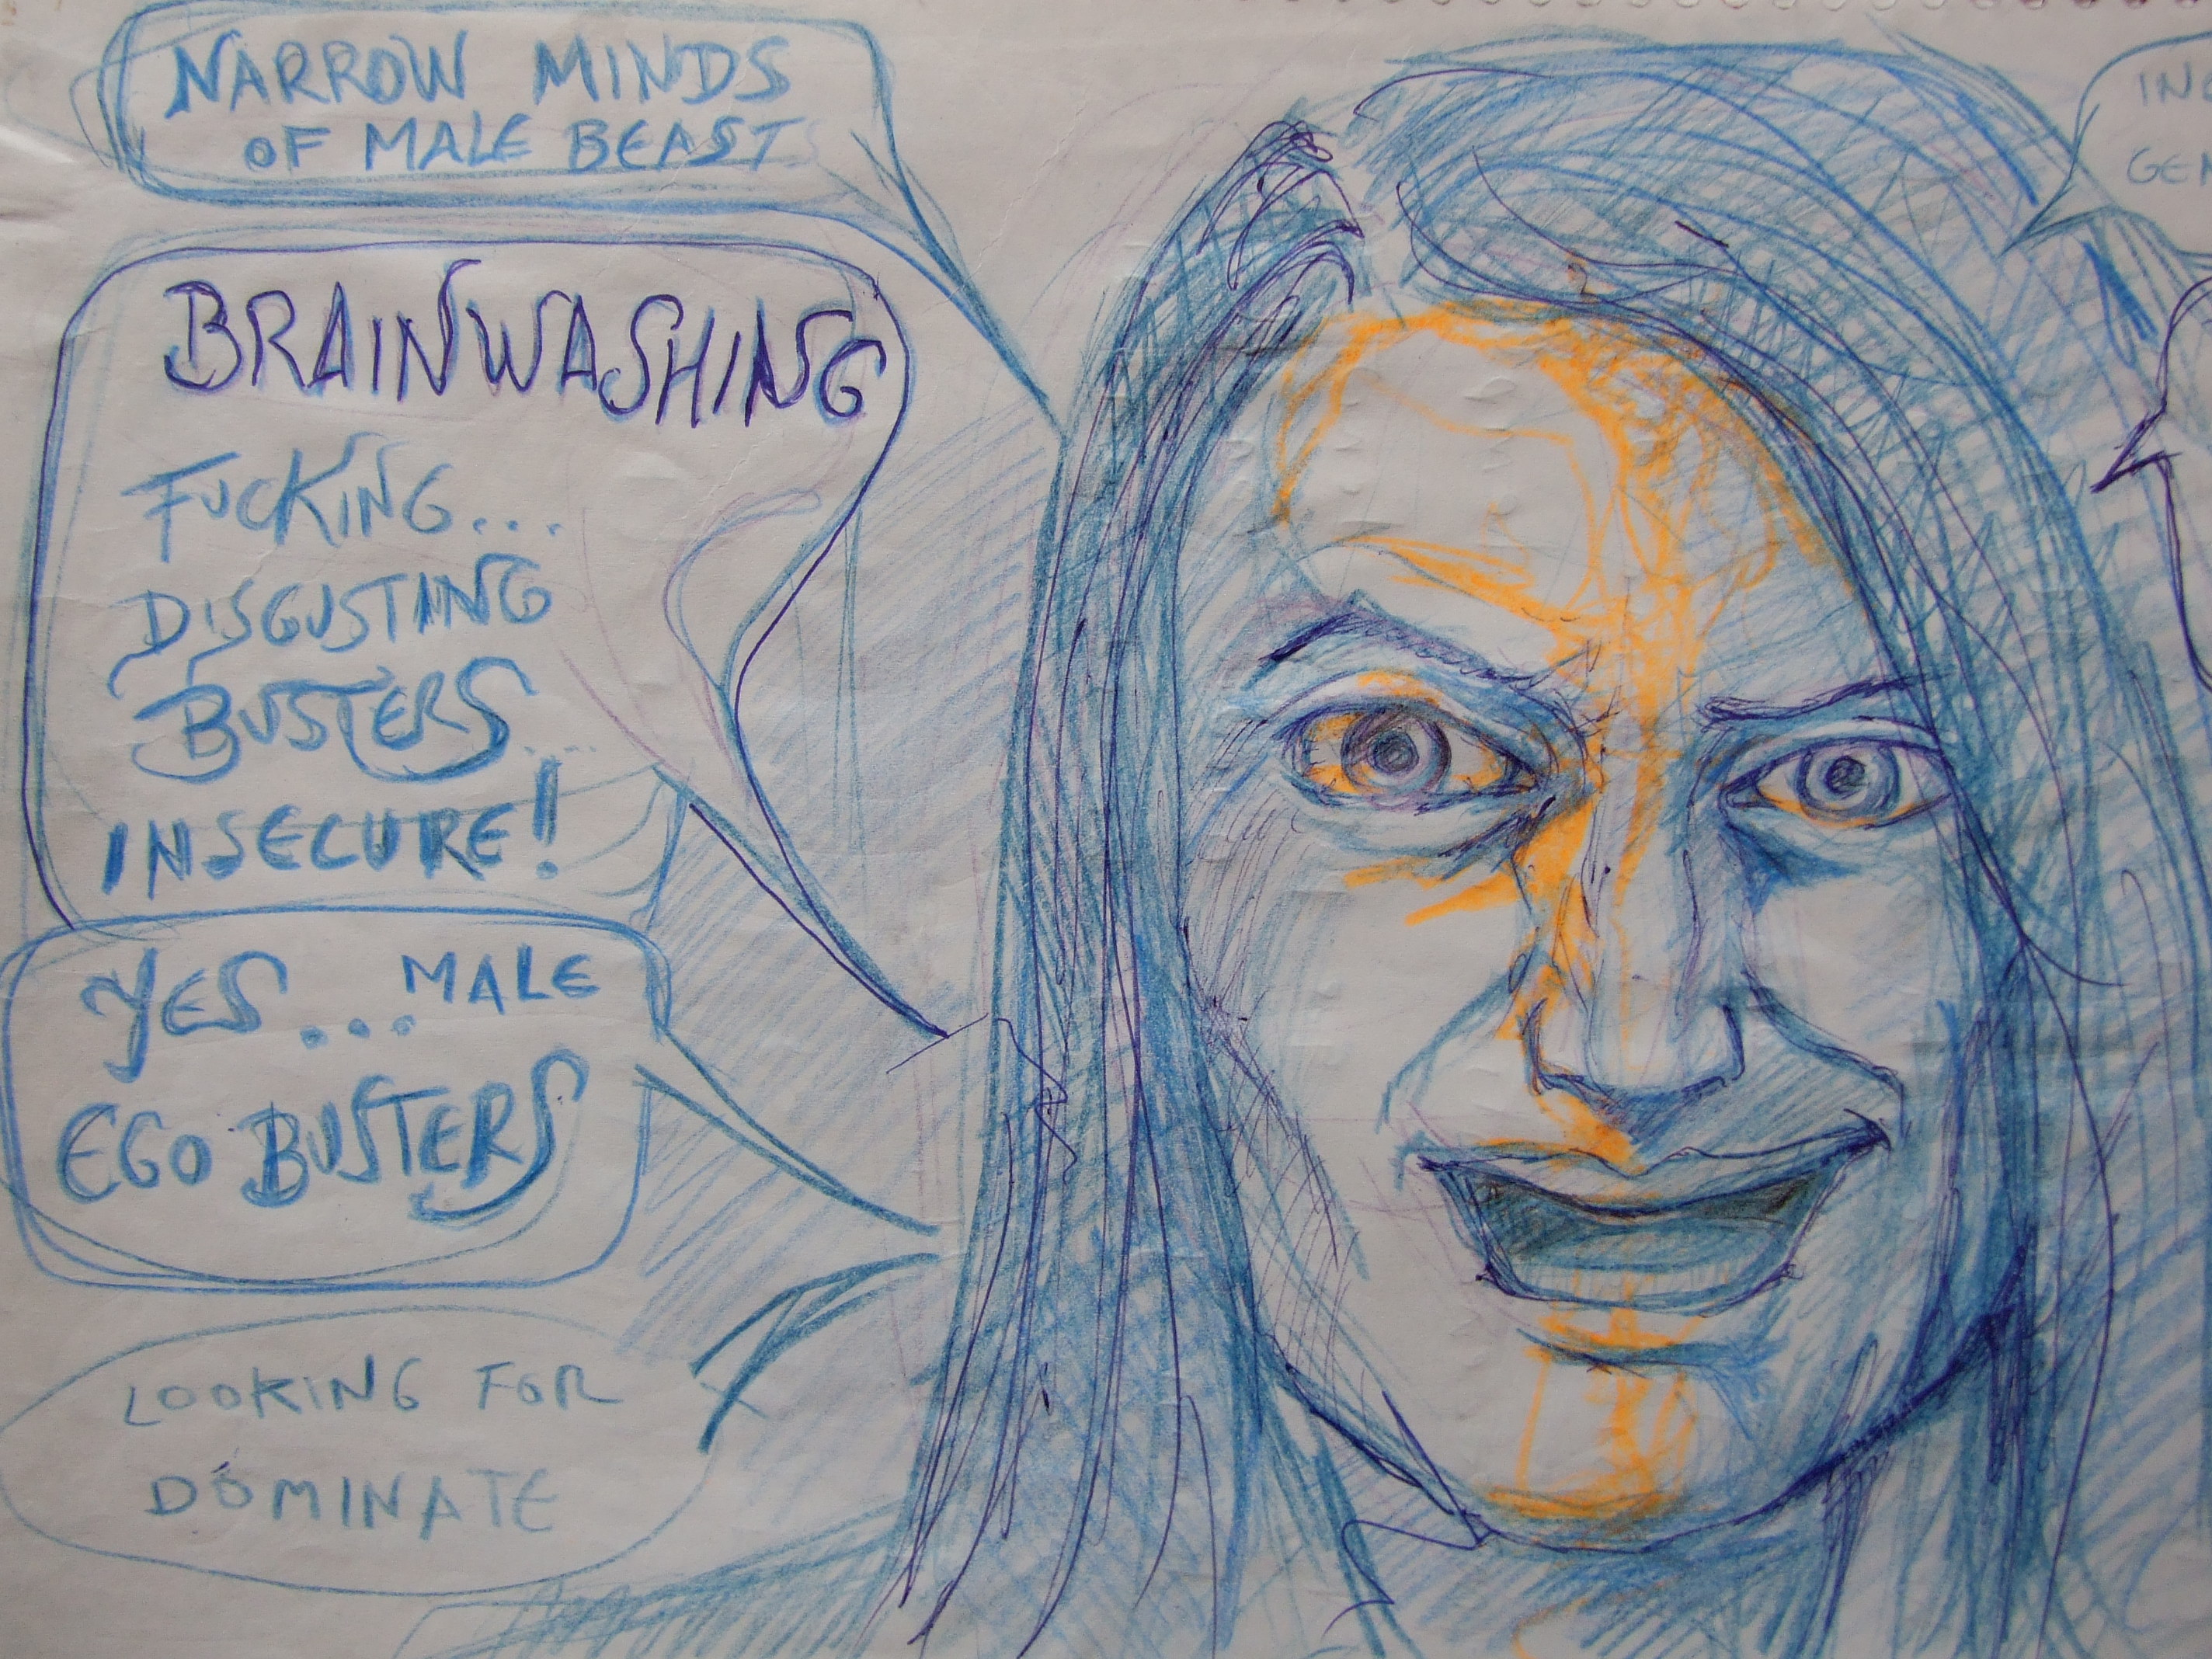 NARROW MINDS
OF MALE BEAST
BRAINWASHING
FUCKING...
DISGUSTING
BUSTERS....
INSECURE!
YES...MALE
EGO BUSTERS
LOOKING FOR
DOMINATE